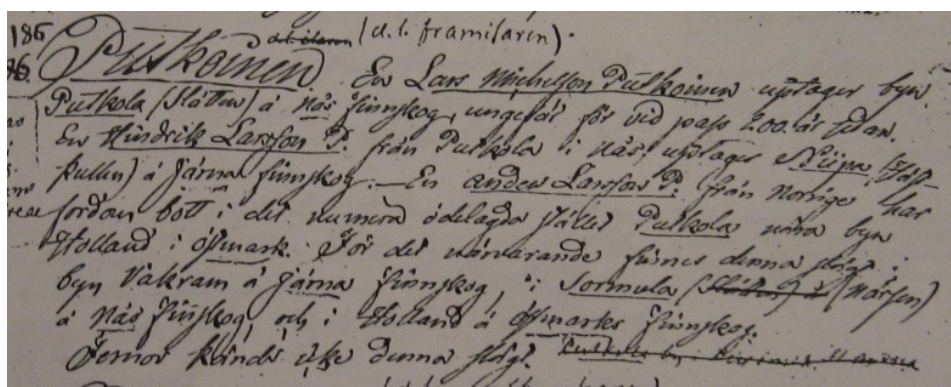 186 d.t. ilaren (d.t. framilaren).
Putkoinen En Lars Michelsson Putkoinen uptager byn
Putkola (Slätten) å Näs finnskog, ungefär för vid pass 200 år sedan.
En Hindrik Larsson P. från Putkola i Näs, uptager Niipa
å Järna finnskog. — En Anders Larsson P. från Norige har
fordom bott i det numera ödelagda stället Putkola nära byn
Holland i Östmark. För det närvarande finnes denna slägt i
byn Vakram å Järna finnskog, i Sormula (Mårsen)
å Näs finnskog, och i Holland å Östmarks finnskog.
Femor kände icke denna slägt.